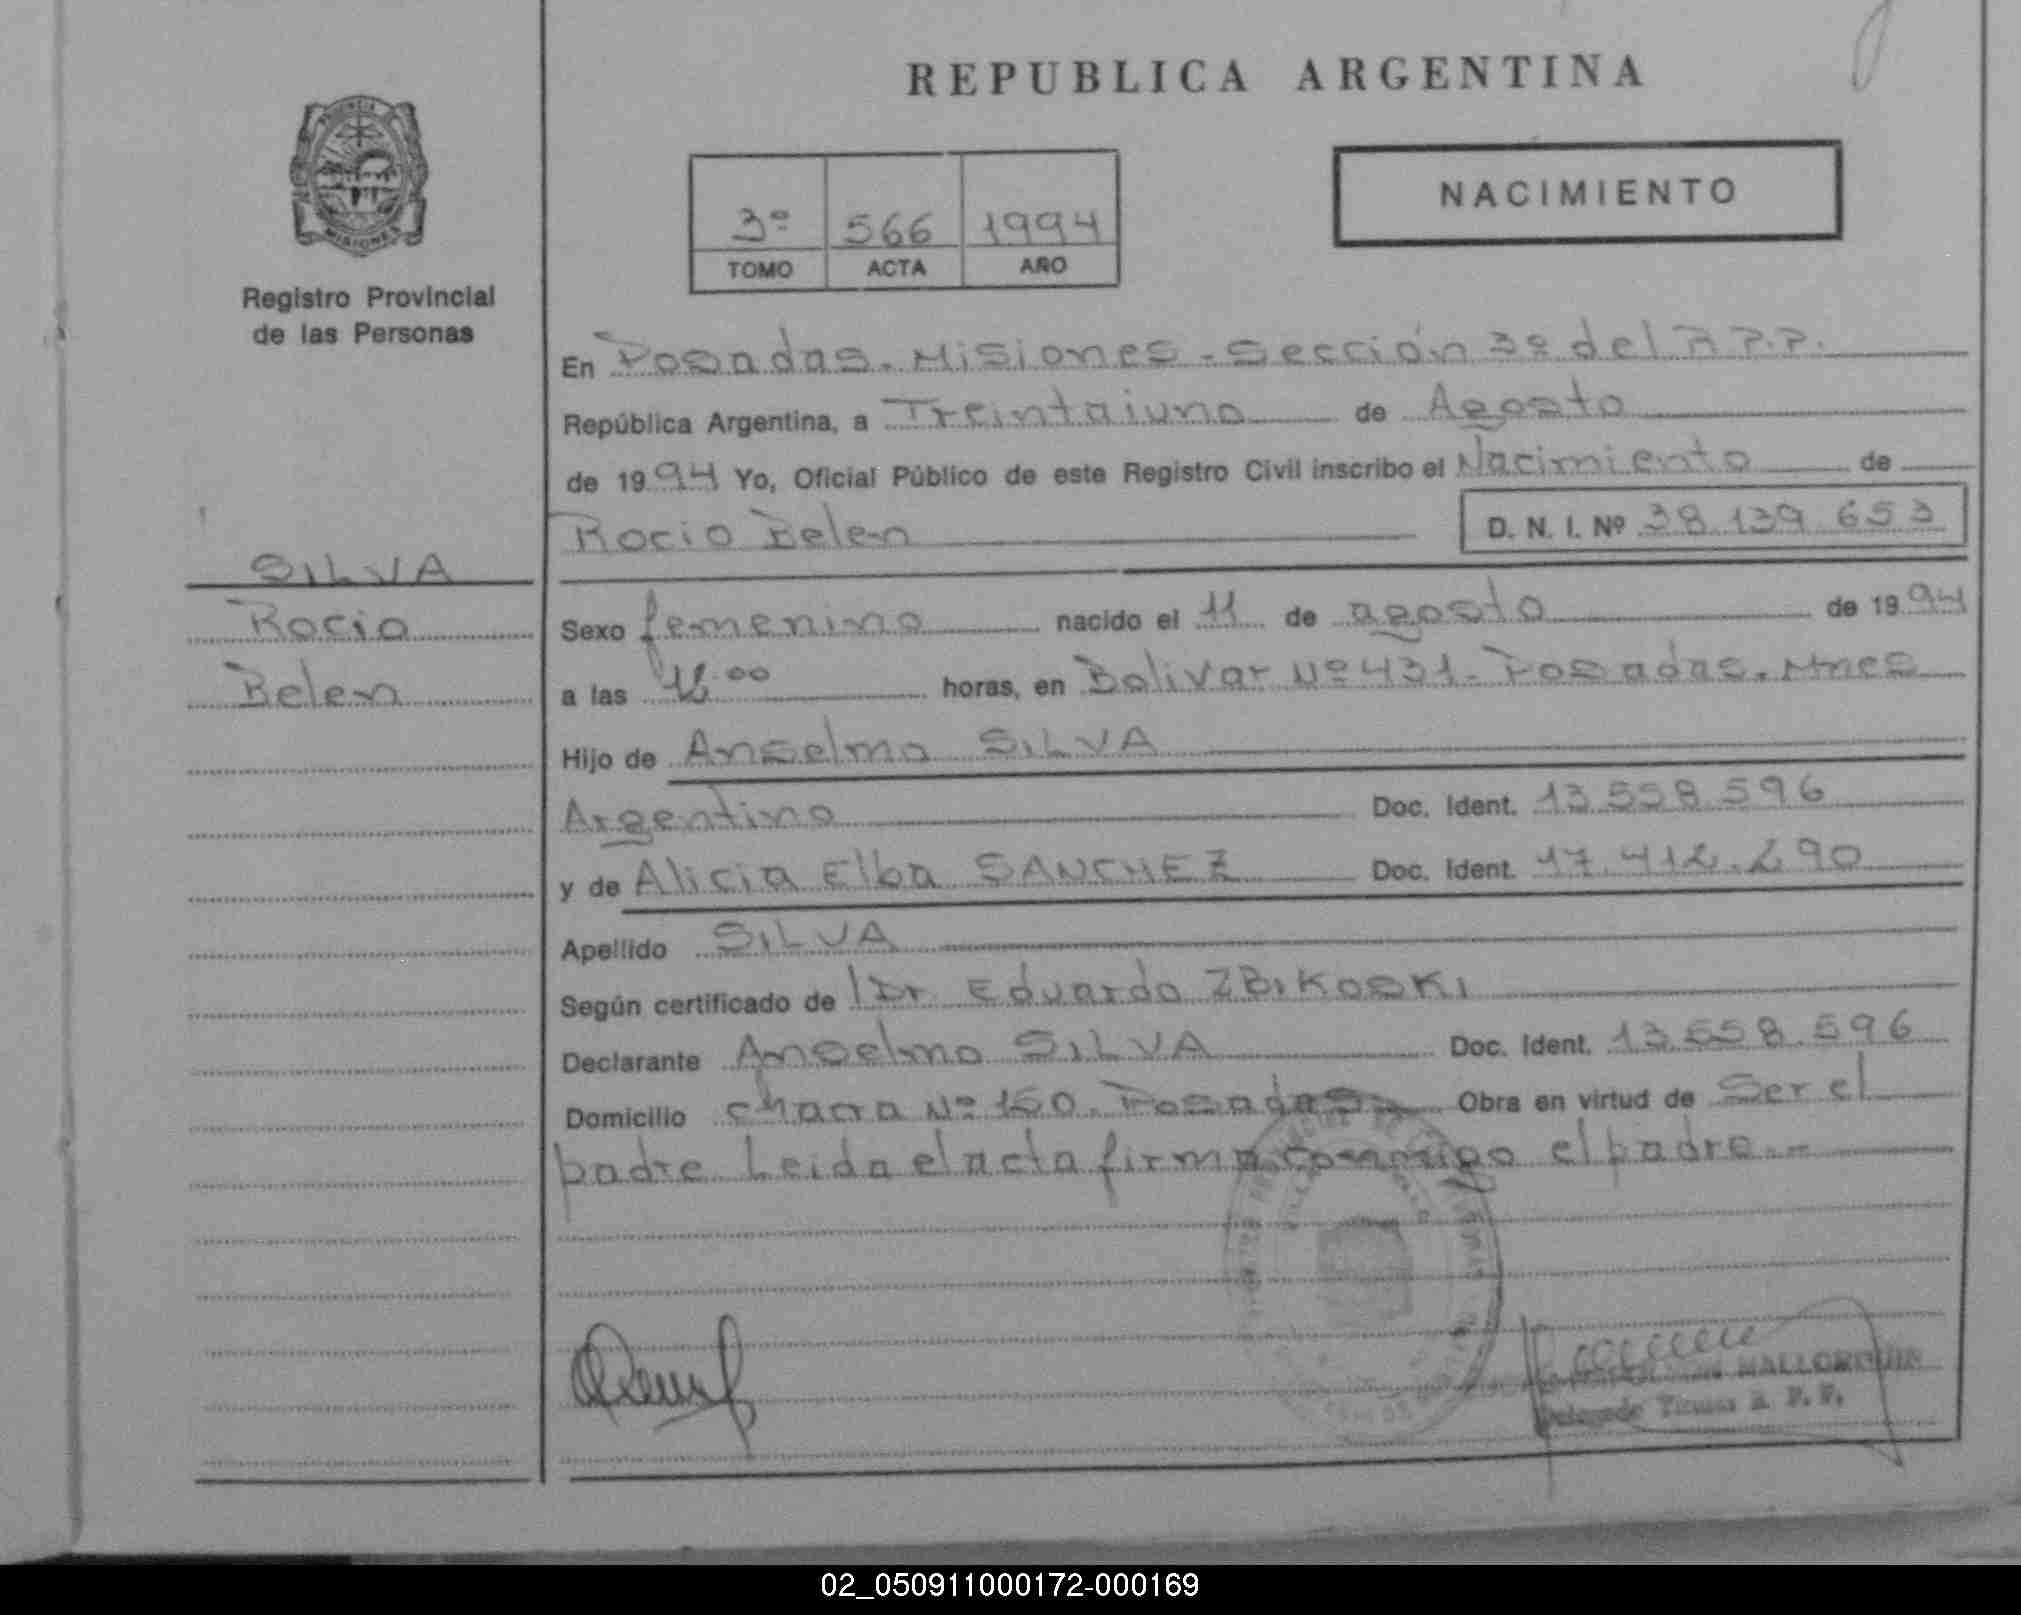 REPUBLICA ARGENTINA
NACIMIENTO
3º 566 1994
TOMO ACTA AÑO
MISIONES
Registro Provincial
de las Personas
En Posadas. Misiones - Sección 3º del R.P.P.
República Argentina, a Treintaiuno de Agosto
de 1994 Yo, Oficial Público de este Registro Civil inscribo el Nacimiento de
Rocio Belen D. N. I. Nº 38.139.653
SILVA
Rocio
Belen
Sexo femenino nacido el 11 de agosto de 1994
a las horas, en Bolivar Nº 431 - Posadas. Mnes
Hijo de Anselmo SILVA
Argentino Doc. Ident. 13.558.596
y de Alicia Elba SANCHEZ Doc. Ident. 17.412.290
Apellido SILVA
Según certificado de Dr Eduardo ZBIKOSKI
Declarante Anselmo SILVA Doc. Ident. 13.558.596
Domicilio chacra Nº 150. Posadas Obra en virtud de Ser el
padre Leida el acta firma conmigo el padre.-
MALLORQUIN
Delegado Titular R. P. P.
02_050911000172-000169